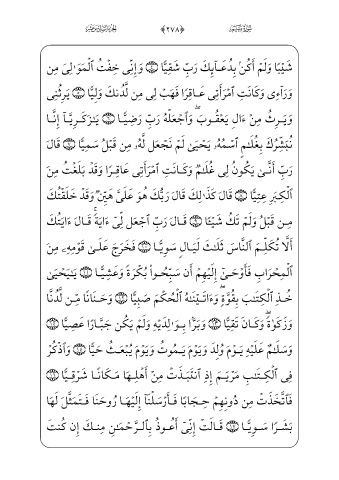 ﴿٢٧٨﴾
شَيْبًا وَلَمْ أَكُنۢ بِدُعَآئِكَ رَبِّ شَقِيًّا ۝ وَإِنِّى خِفْتُ ٱلْمَوَٰلِىَ مِن
وَرَآءِى وَكَانَتِ ٱمْرَأَتِى عَاقِرًا فَهَبْ لِى مِن لَّدُنكَ وَلِيًّا ۝ يَرِثُنِى
وَيَرِثُ مِنْ ءَالِ يَعْقُوبَ ۖ وَٱجْعَلْهُ رَبِّ رَضِيًّا ۝ يَٰزَكَرِيَّآ إِنَّا
نُبَشِّرُكَ بِغُلَٰمٍ ٱسْمُهُۥ يَحْيَىٰ لَمْ نَجْعَل لَّهُۥ مِن قَبْلُ سَمِيًّا ۝ قَالَ
رَبِّ أَنَّىٰ يَكُونُ لِى غُلَٰمٌ وَكَانَتِ ٱمْرَأَتِى عَاقِرًا وَقَدْ بَلَغْتُ مِنَ
ٱلْكِبَرِ عِتِيًّا ۝ قَالَ كَذَٰلِكَ قَالَ رَبُّكَ هُوَ عَلَىَّ هَيِّنٌ وَقَدْ خَلَقْتُكَ
مِن قَبْلُ وَلَمْ تَكُ شَيْـًٔا ۝ قَالَ رَبِّ ٱجْعَل لِّىٓ ءَايَةً ۚ قَالَ ءَايَتُكَ
أَلَّا تُكَلِّمَ ٱلنَّاسَ ثَلَٰثَ لَيَالٍ سَوِيًّا ۝ فَخَرَجَ عَلَىٰ قَوْمِهِۦ مِنَ
ٱلْمِحْرَابِ فَأَوْحَىٰٓ إِلَيْهِمْ أَن سَبِّحُوا۟ بُكْرَةً وَعَشِيًّا ۝ يَٰيَحْيَىٰ
خُذِ ٱلْكِتَٰبَ بِقُوَّةٍ ۖ وَءَاتَيْنَٰهُ ٱلْحُكْمَ صَبِيًّا ۝ وَحَنَانًا مِّن لَّدُنَّا
وَزَكَوٰةً ۖ وَكَانَ تَقِيًّا ۝ وَبَرًّۢا بِوَٰلِدَيْهِ وَلَمْ يَكُن جَبَّارًا عَصِيًّا ۝
وَسَلَٰمٌ عَلَيْهِ يَوْمَ وُلِدَ وَيَوْمَ يَمُوتُ وَيَوْمَ يُبْعَثُ حَيًّا ۝ وَٱذْكُرْ
فِى ٱلْكِتَٰبِ مَرْيَمَ إِذِ ٱنتَبَذَتْ مِنْ أَهْلِهَا مَكَانًا شَرْقِيًّا ۝
فَٱتَّخَذَتْ مِن دُونِهِمْ حِجَابًا فَأَرْسَلْنَآ إِلَيْهَا رُوحَنَا فَتَمَثَّلَ لَهَا
بَشَرًا سَوِيًّا ۝ قَالَتْ إِنِّىٓ أَعُوذُ بِٱلرَّحْمَٰنِ مِنكَ إِن كُنتَ